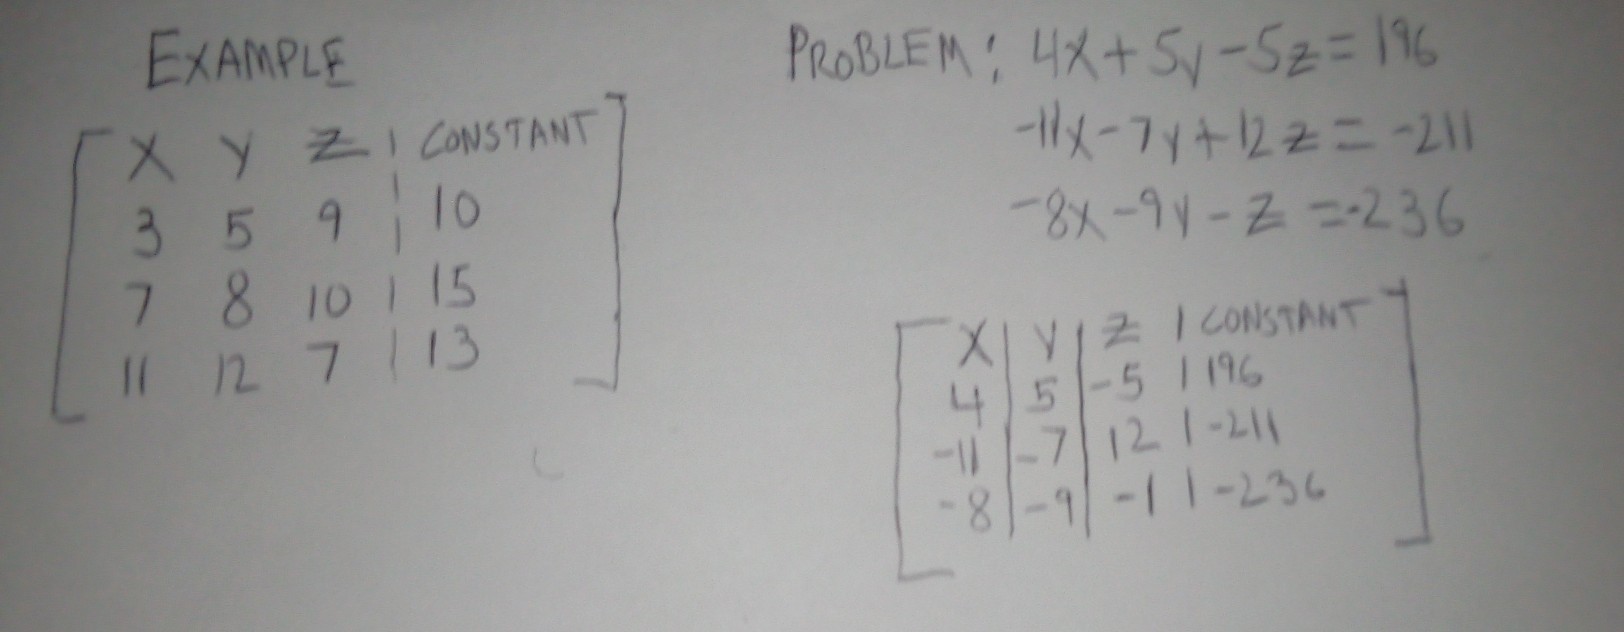 EXAMPLE
X Y Z | CONSTANT
3 5 9 | 10
7 8 10 | 15
11 12 7 | 13
PROBLEM: 4X+5y-5z=196
-11x-7y+12z=-211
-8x-9y-z=-236
X | Y | Z | CONSTANT
4 | 5 | -5 | 196
-11 | -7 | 12 | -211
-8 | -9 | -1 | -236